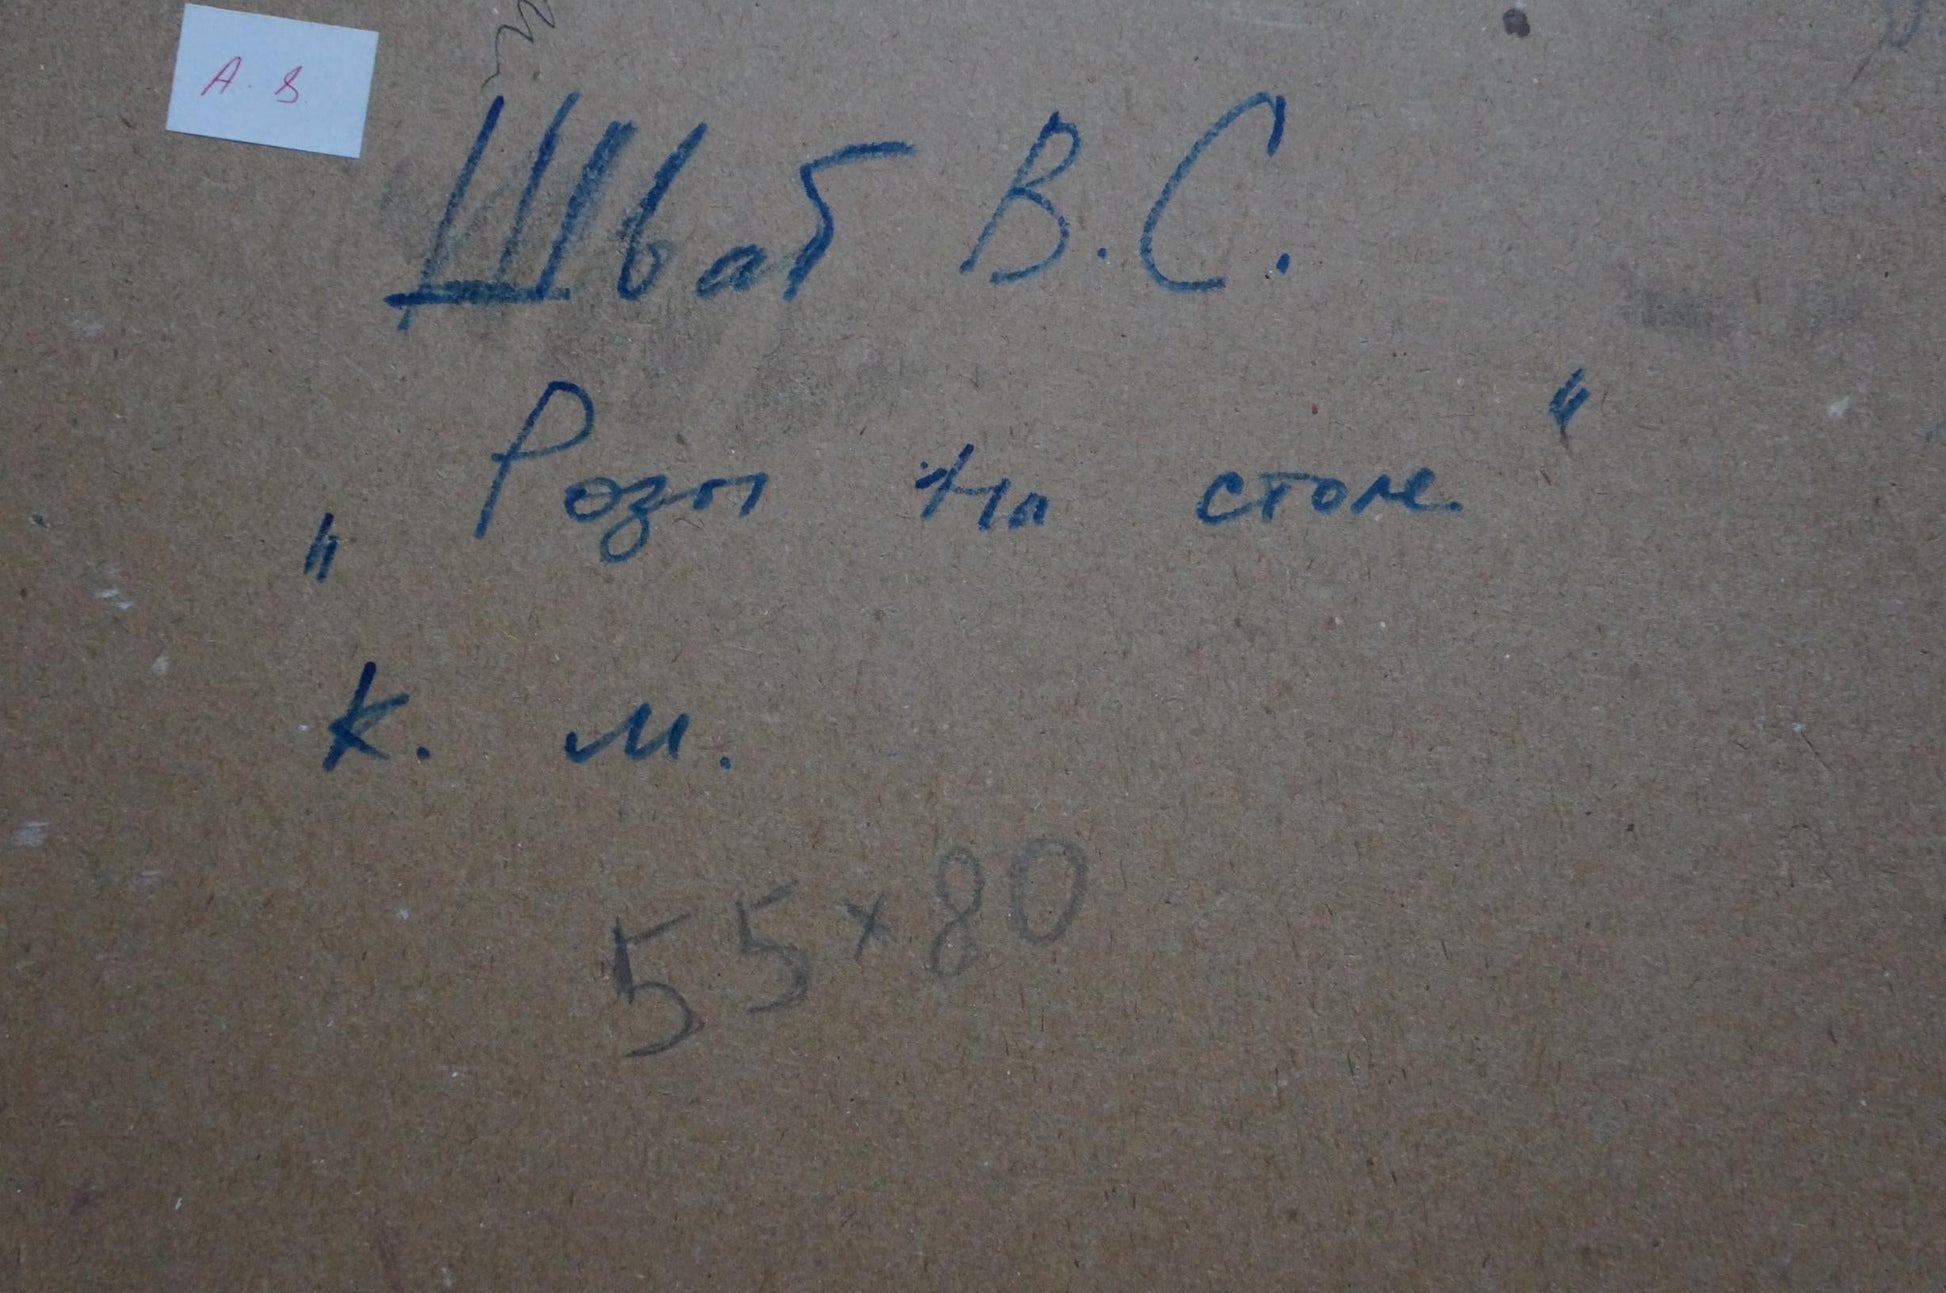 А. В.
Шваб В.С.
„Розы на столе."
к. м.
55×80